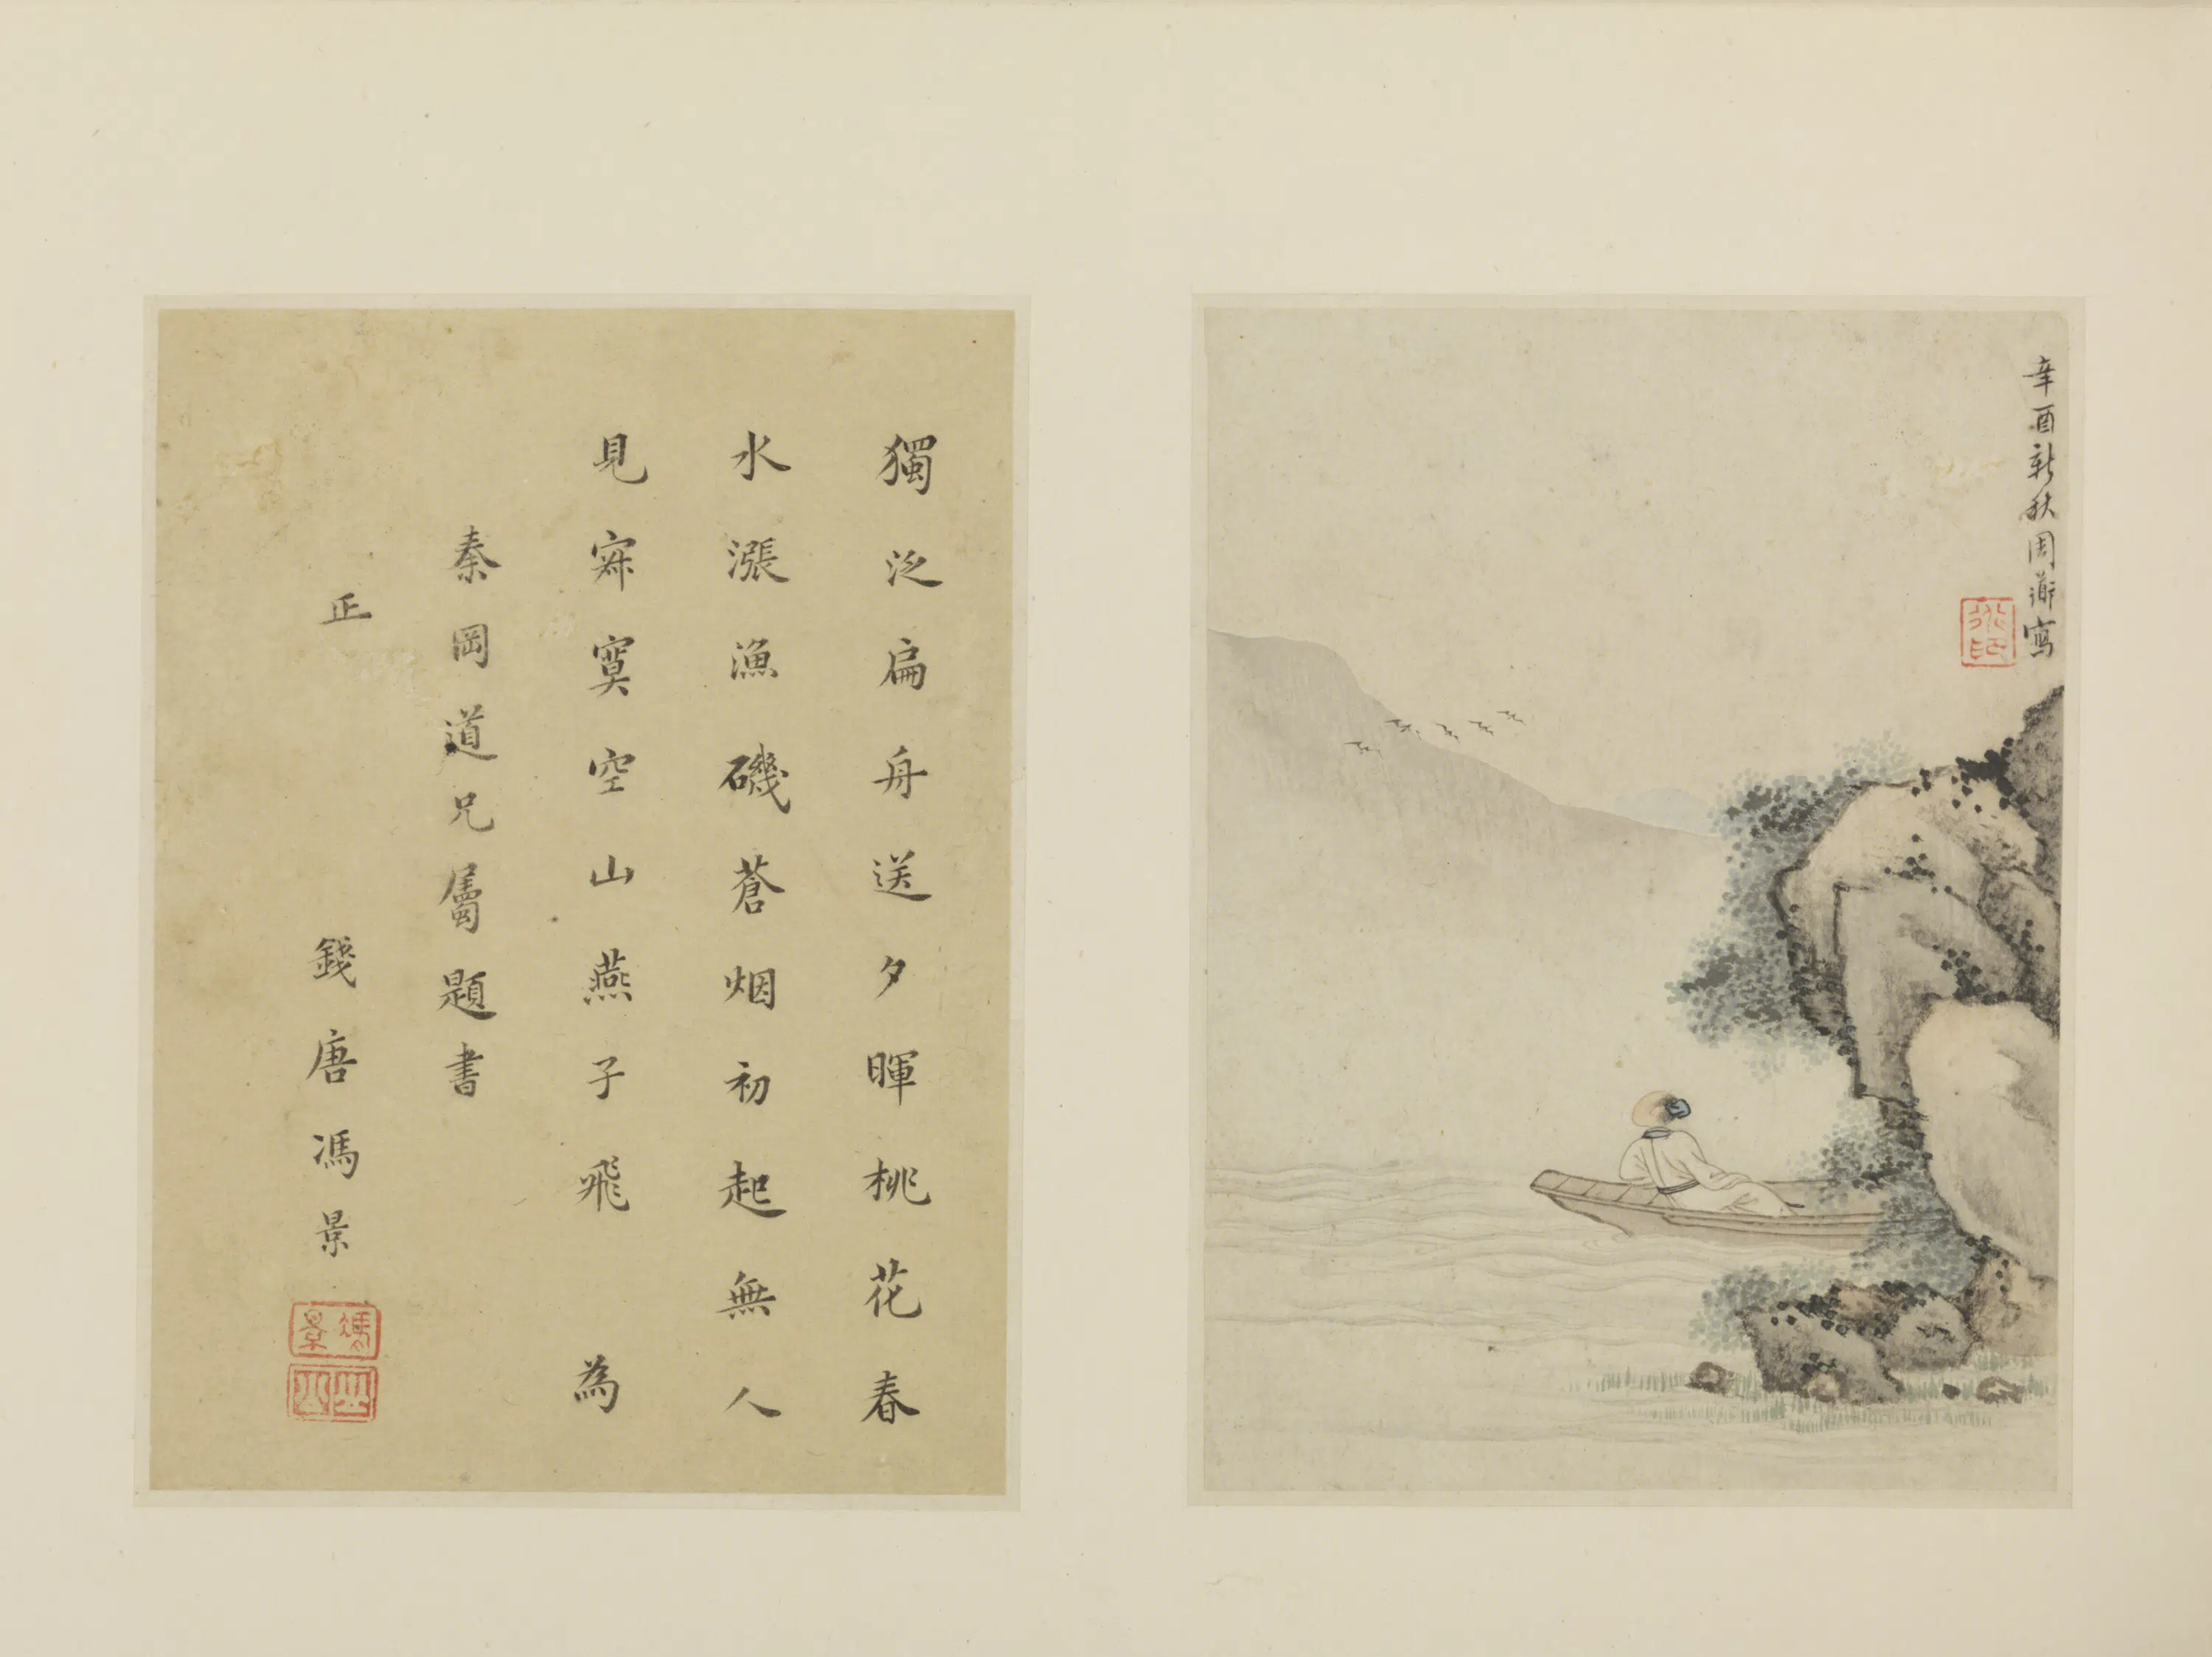 辛酉新秋周蘅写
獨泛扁舟送夕暉桃花春
水漲漁磯蒼烟初起無人
見寂寞空山燕子飛 為
秦岡道兄屬題書
正 錢唐馮景
馮景